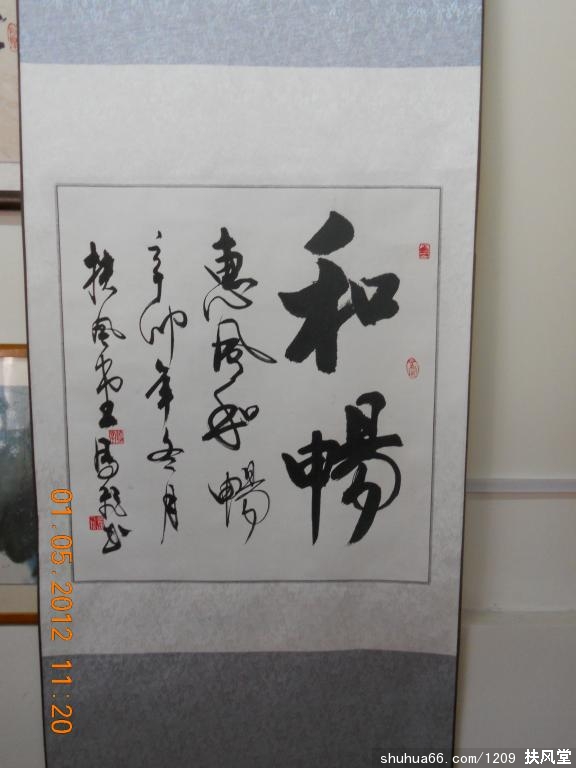 和暢
惠風和暢
辛卯年冬月
扶風堂主
馬
书
01.05.2012 11:20
shuhua66.com/1209 扶风堂